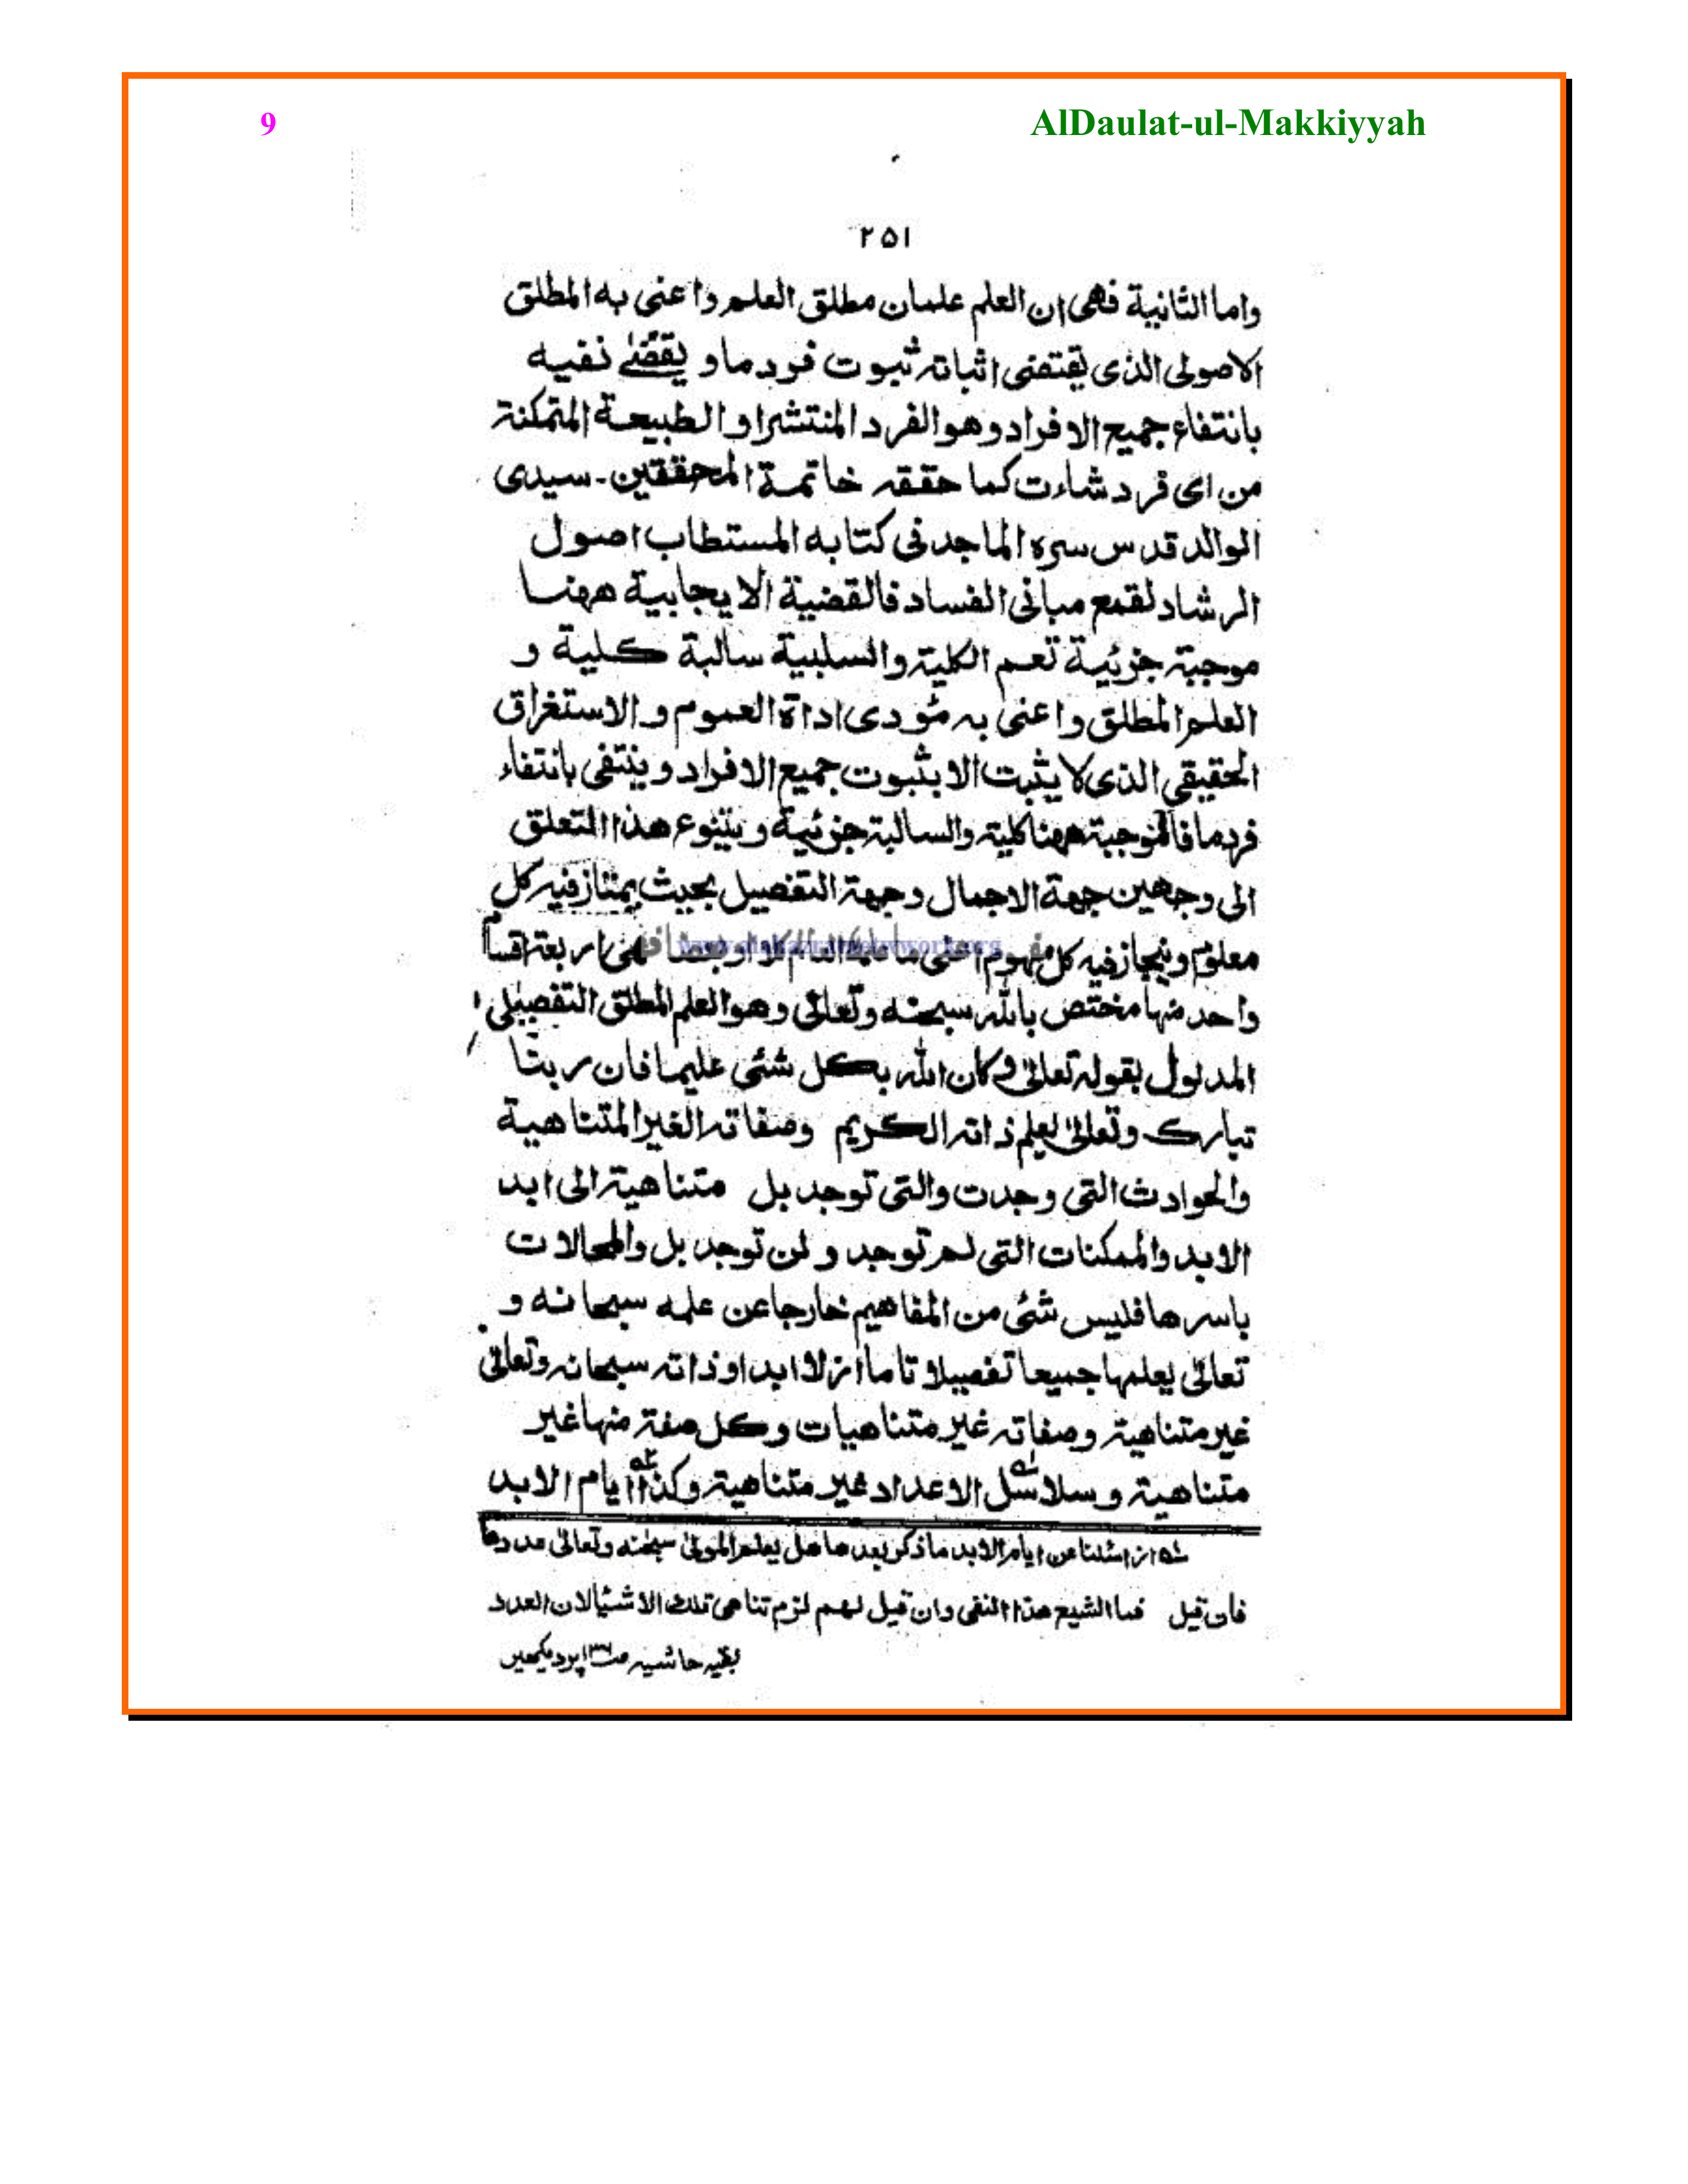 9 AlDaulat-ul-Makkiyyah
۲۵۱
واما الثانية فهى ان العلم علمان مطلق العلم واعنى به المطلق
الاصولى الذى يقتضى اثباته ثبوت فرد ما و يقضے نفيه
بانتفاء جميع الافراد وهو الفرد المنتشر او الطبيعة المتمكنة
من اى فرد شاءت كما حققه خاتمة المحققين۔ سيدى
الوالد قدس سره الماجد فى كتابه المستطاب اصول
الرشاد لقمع مبانى الفساد فالقضية الايجابية ههنا
موجبة جزئية تعم الكلية والسلبية سالبة كلية و
العلم المطلق واعنى به مؤدى اداة العموم و الاستغراق
الحقيقى الذى لا يثبت الا بثبوت جميع الافراد و ينتفى بانتفاء
فرد ما فالموجبة ههنا كلية والسالبة جزئية و يتنوع هذا التعلق
الى وجهين جهة الاجمال وجهة التفصيل بحيث يمتاز فيه كل
معلوم و ينحاز فيه كل مفهوم اعنى ما فهى اربعة اقسام
www.alahazratnetwork.org
واحد منها مختص بالله سبحنه وتعالى وهو العلم المطلق التفصيلى
المدلول بقوله تعالىٰ وكان الله بكل شئى عليما فان ربنا
تبارك وتعالىٰ يعلم ذاته الكريم وصفاته الغير المتناهية
والحوادث التى وجدت والتى توجد بل متناهية الى ابد
الابد والممكنات التى لم توجد و لن توجد بل والمحالات
باسرها فليس شئى من المفاهيم خارجا عن علمه سبحانه و
تعالىٰ يعلمها جميعا تفصيلا تاما ازلا ابدا وذاته سبحانه وتعالىٰ
غير متناهية وصفاته غير متناهيات وكل صفة منها غير
متناهية و سلاسل الاعداد غير متناهية وكذا ايام الابد
اذا سئلنا عن ايام الابد ما ذكر بعدها هل يعلم المولىٰ سبحٰنه وتعالىٰ عددها
فان قيل فما الشيع هذا النفى وان قيل لهم لزم تناهى تلك الاشيا لان العدد
بقيه حاشيه پر ديكهيں